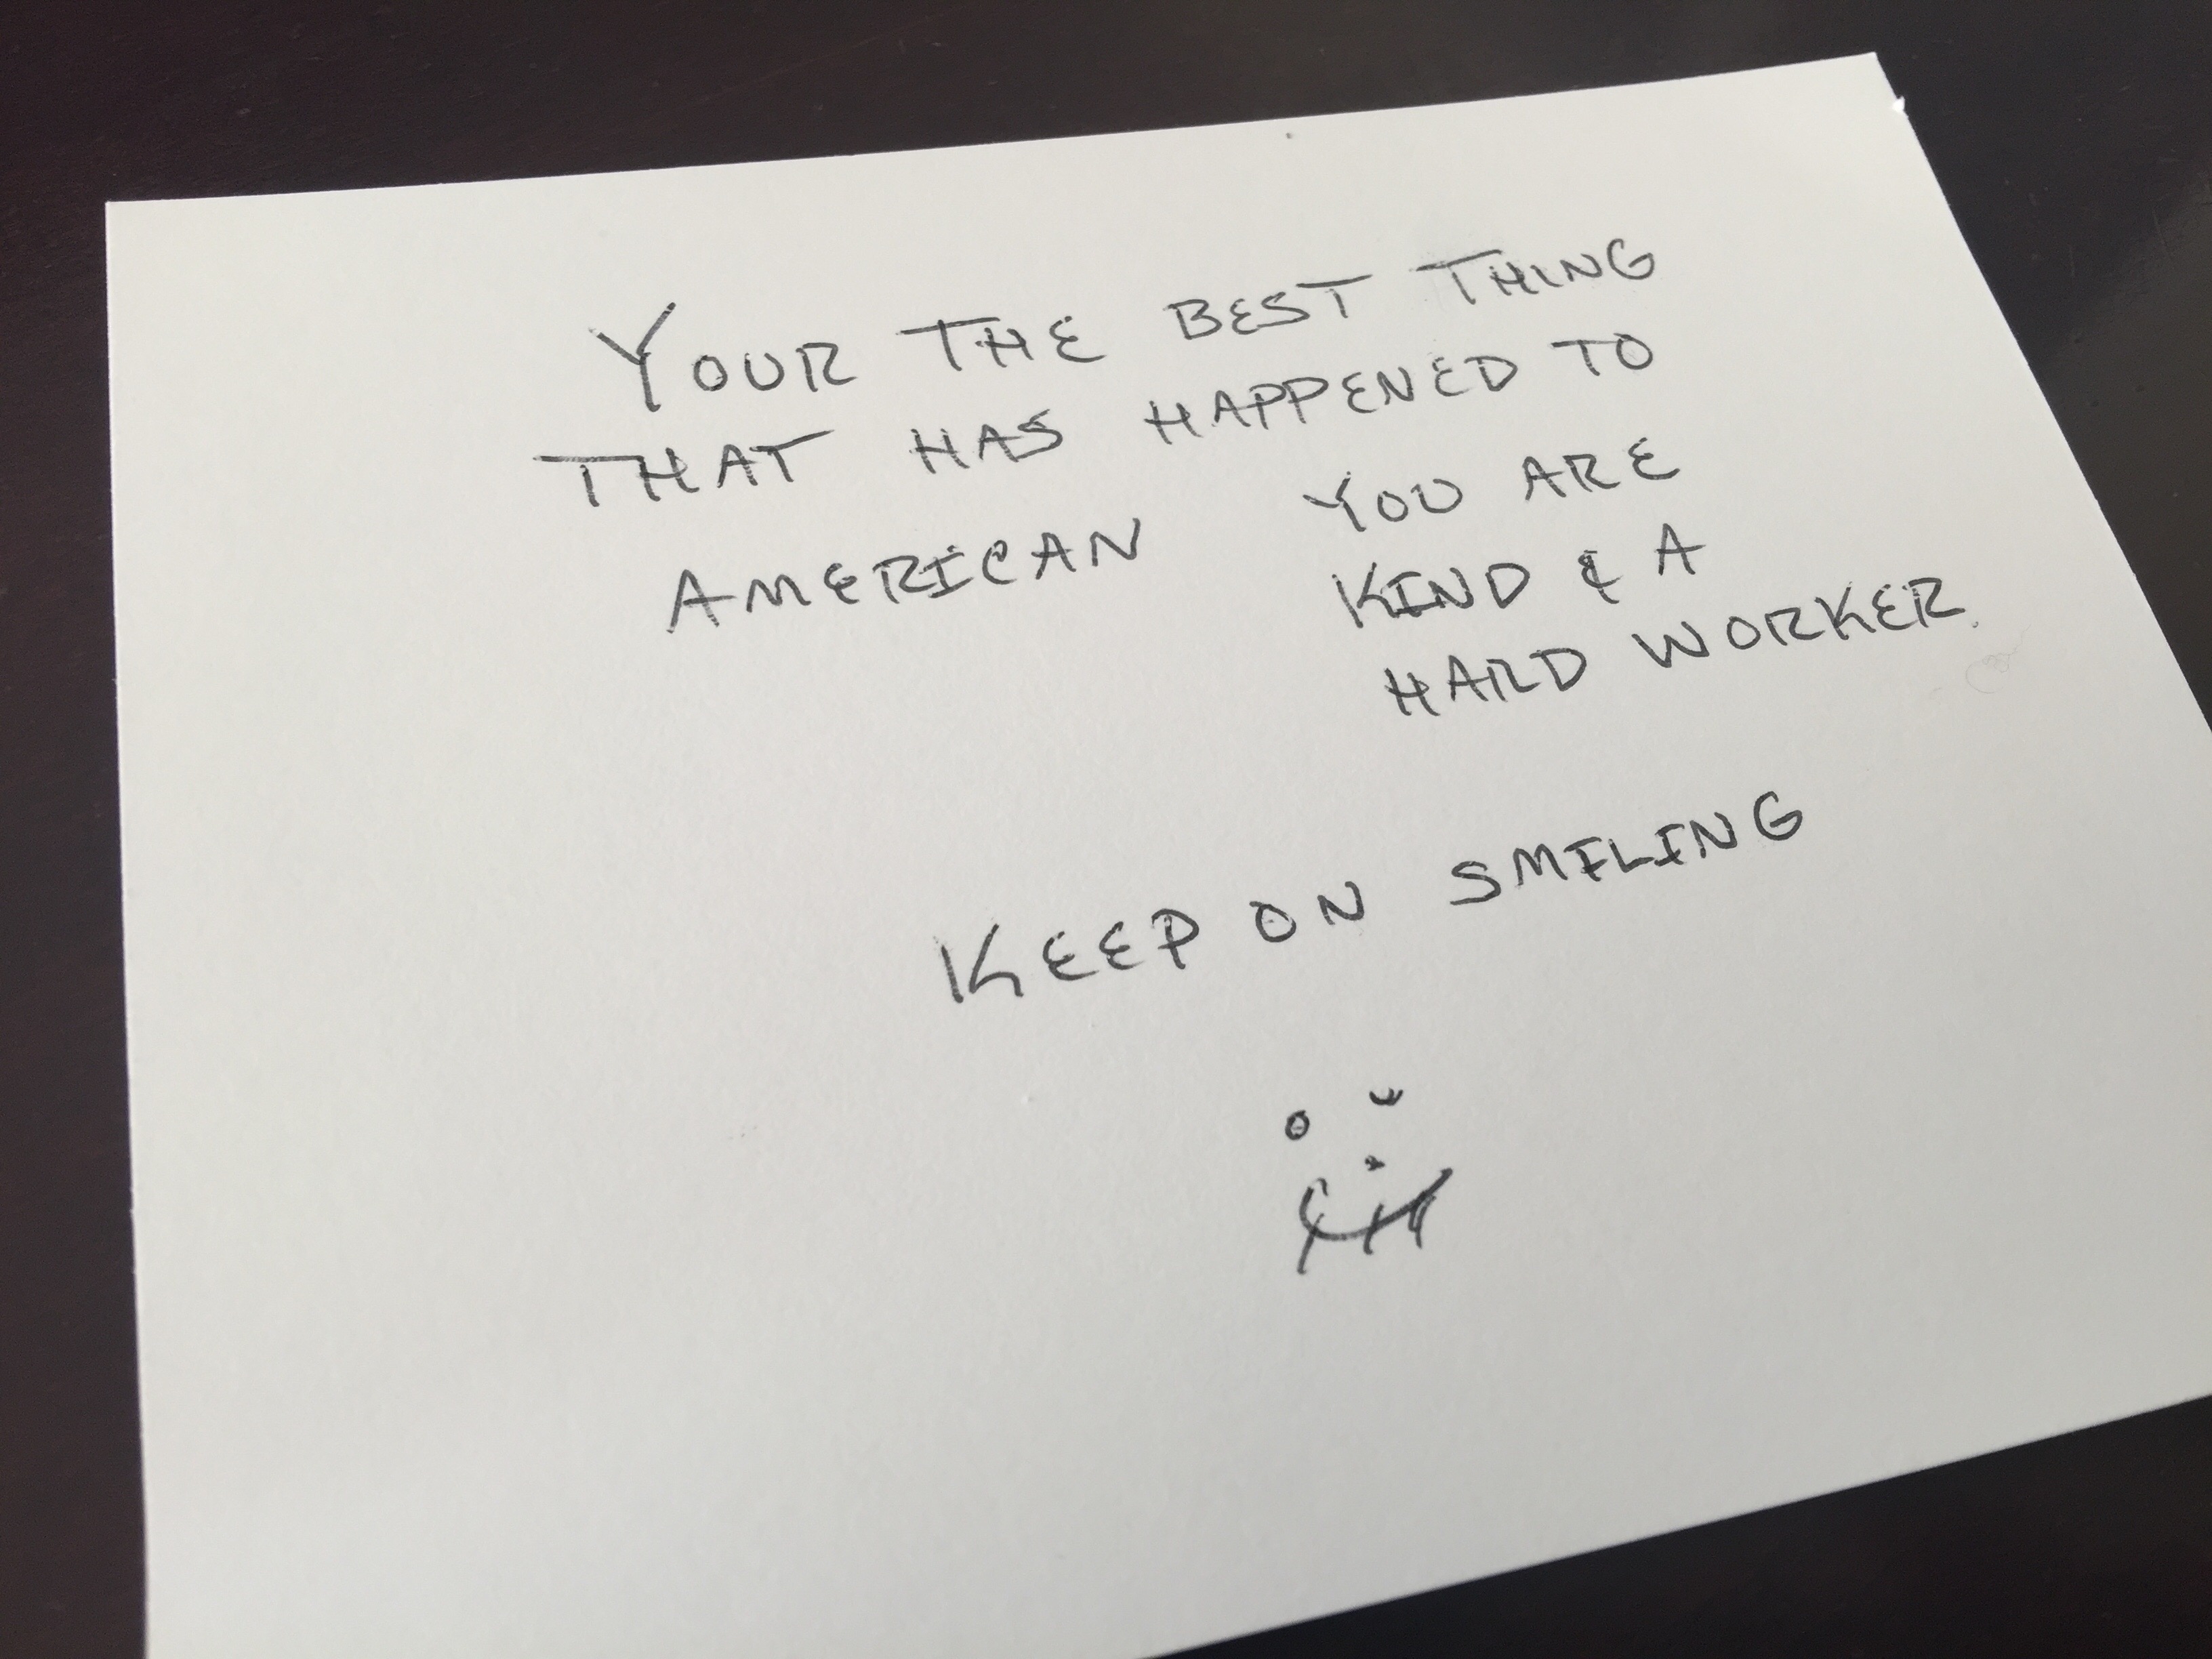 YOUR THE BEST THING
THAT HAS HAPPENED TO
AMERICAN YOU ARE
KIND & A
HARD WORKER.
KEEP ON SMILING